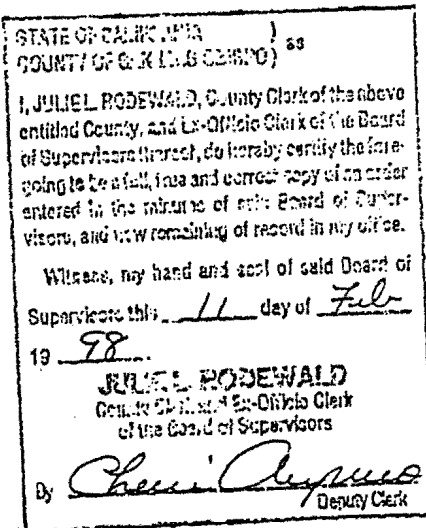 STATE OF CALIFORNIA )
COUNTY OF SAN LUIS OBISPO ) ss
I, JULIE L. RODEWALD, County Clerk of the above
entitled County, and Ex-Officio Clerk of the Board
of Supervisors thereof, do hereby certify the fore-
going to be a full, true and correct copy of an order
entered in the minutes of said Board of Super-
visors, and now remaining of record in my office.
Witness, my hand and seal of said Board of
Supervisors this 11 day of Feb
19 98.
JULIE L. RODEWALD
County Clerk and Ex-Officio Clerk
of the Board of Supervisors
By Cheri
Deputy Clerk